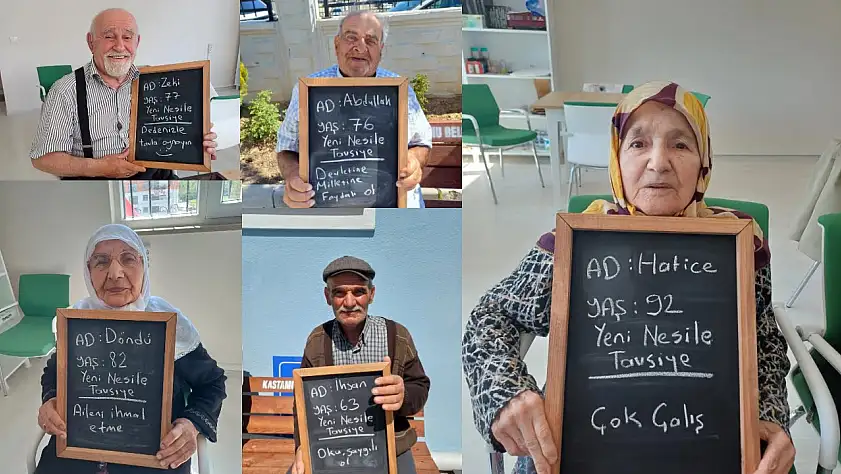 AD: Zeki
YAŞ: 77
Yeni Nesile
Tavsiye
Dedenizle
tavla oynayın
AD: Abdullah
YAŞ: 76
Yeni Nesile
Tavsiye
Devletine
Milletine
Faydalı ol
AD: Hatice
YAŞ: 92
Yeni Nesile
Tavsiye
Çok Çalış
AD: Döndü
YAŞ: 82
Yeni Nesile
Tavsiye
Aileni ihmal
etme
KASTAM
AD: İhsan
YAŞ: 63
Yeni Nesile
Tavsiye
Oku, saygılı
ol